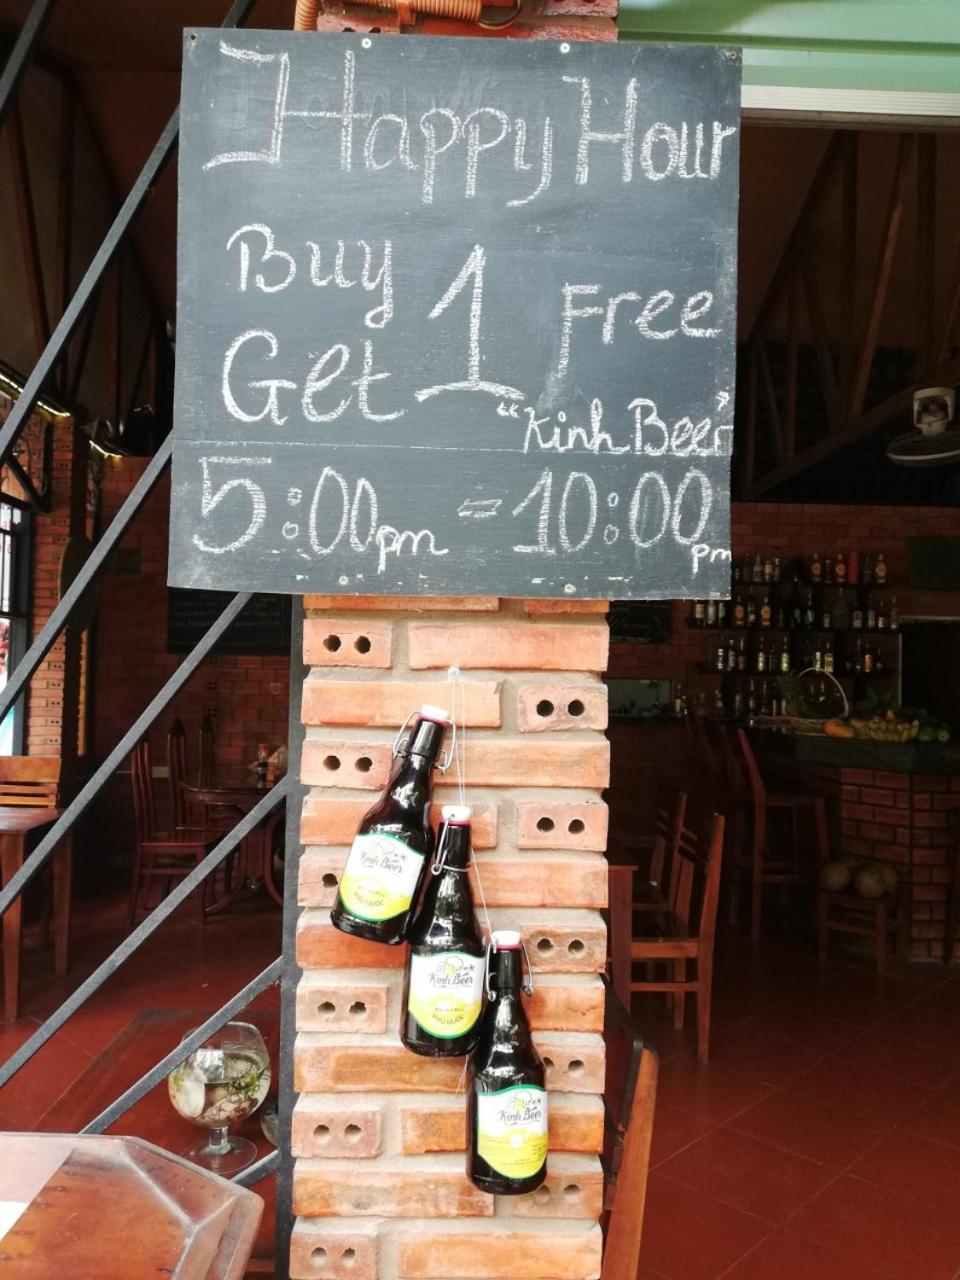 Happy Hour
Buy 1
Get 1 Free
"Kinh Beer"
5:00pm = 10:00pm
Kinh Beer
PHÚ QUỐC
Kinh Beer
PHÚ QUỐC
Kinh Beer